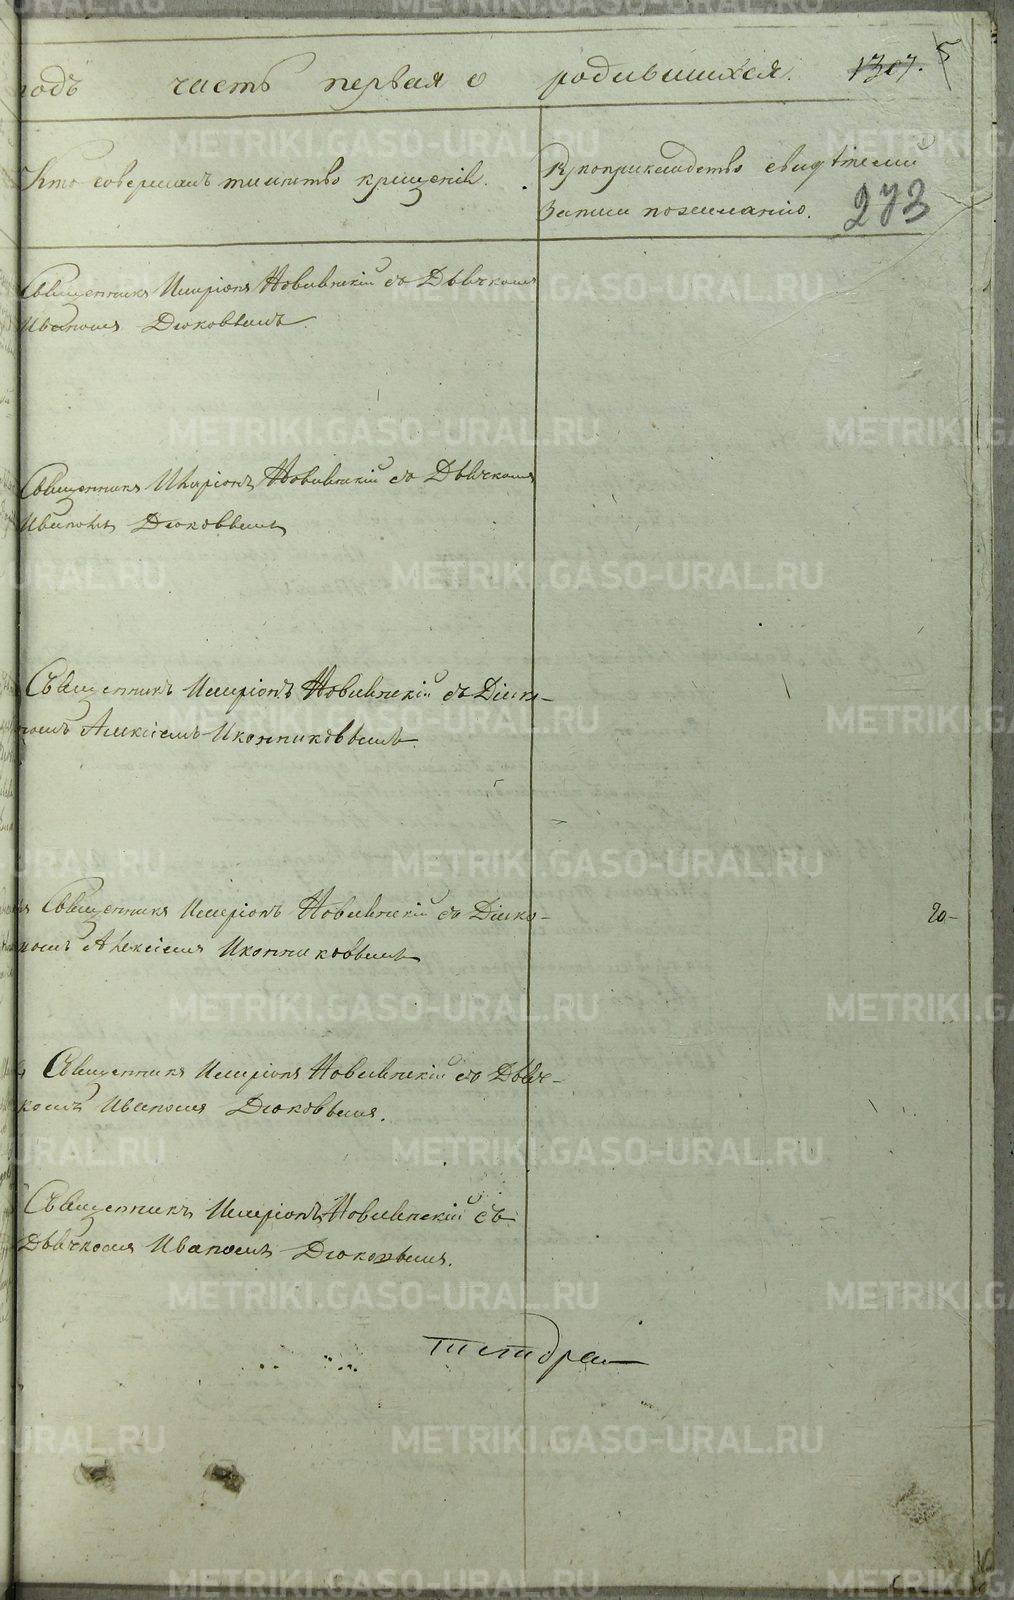 годъ часть первая о родившихся. 1307. 5
Кто совершалъ таинство крещенія. Рукоприкладство свидѣтелей
записи по желанію. 273
Священникъ Иларіонъ Новинскій съ Дьячкомъ
Иваномъ Дюковымъ.
Священникъ Иларіонъ Новинскій съ Дьячкомъ
Иваномъ Дюковымъ
Священникъ Иларіонъ Новинскій съ Діако-
номъ Алексіемъ Иконниковымъ.
Священникъ Иларіонъ Новинскій съ Діако-
номъ Алексіемъ Иконниковымъ
20-
Священникъ Иларіонъ Новинскій съ Дьяч-
комъ Иваномъ Дюковымъ.
Священникъ Иларіонъ Новинскій съ
Дьячкомъ Иваномъ Дюковымъ.
METRIKI.GASO-URAL.RU